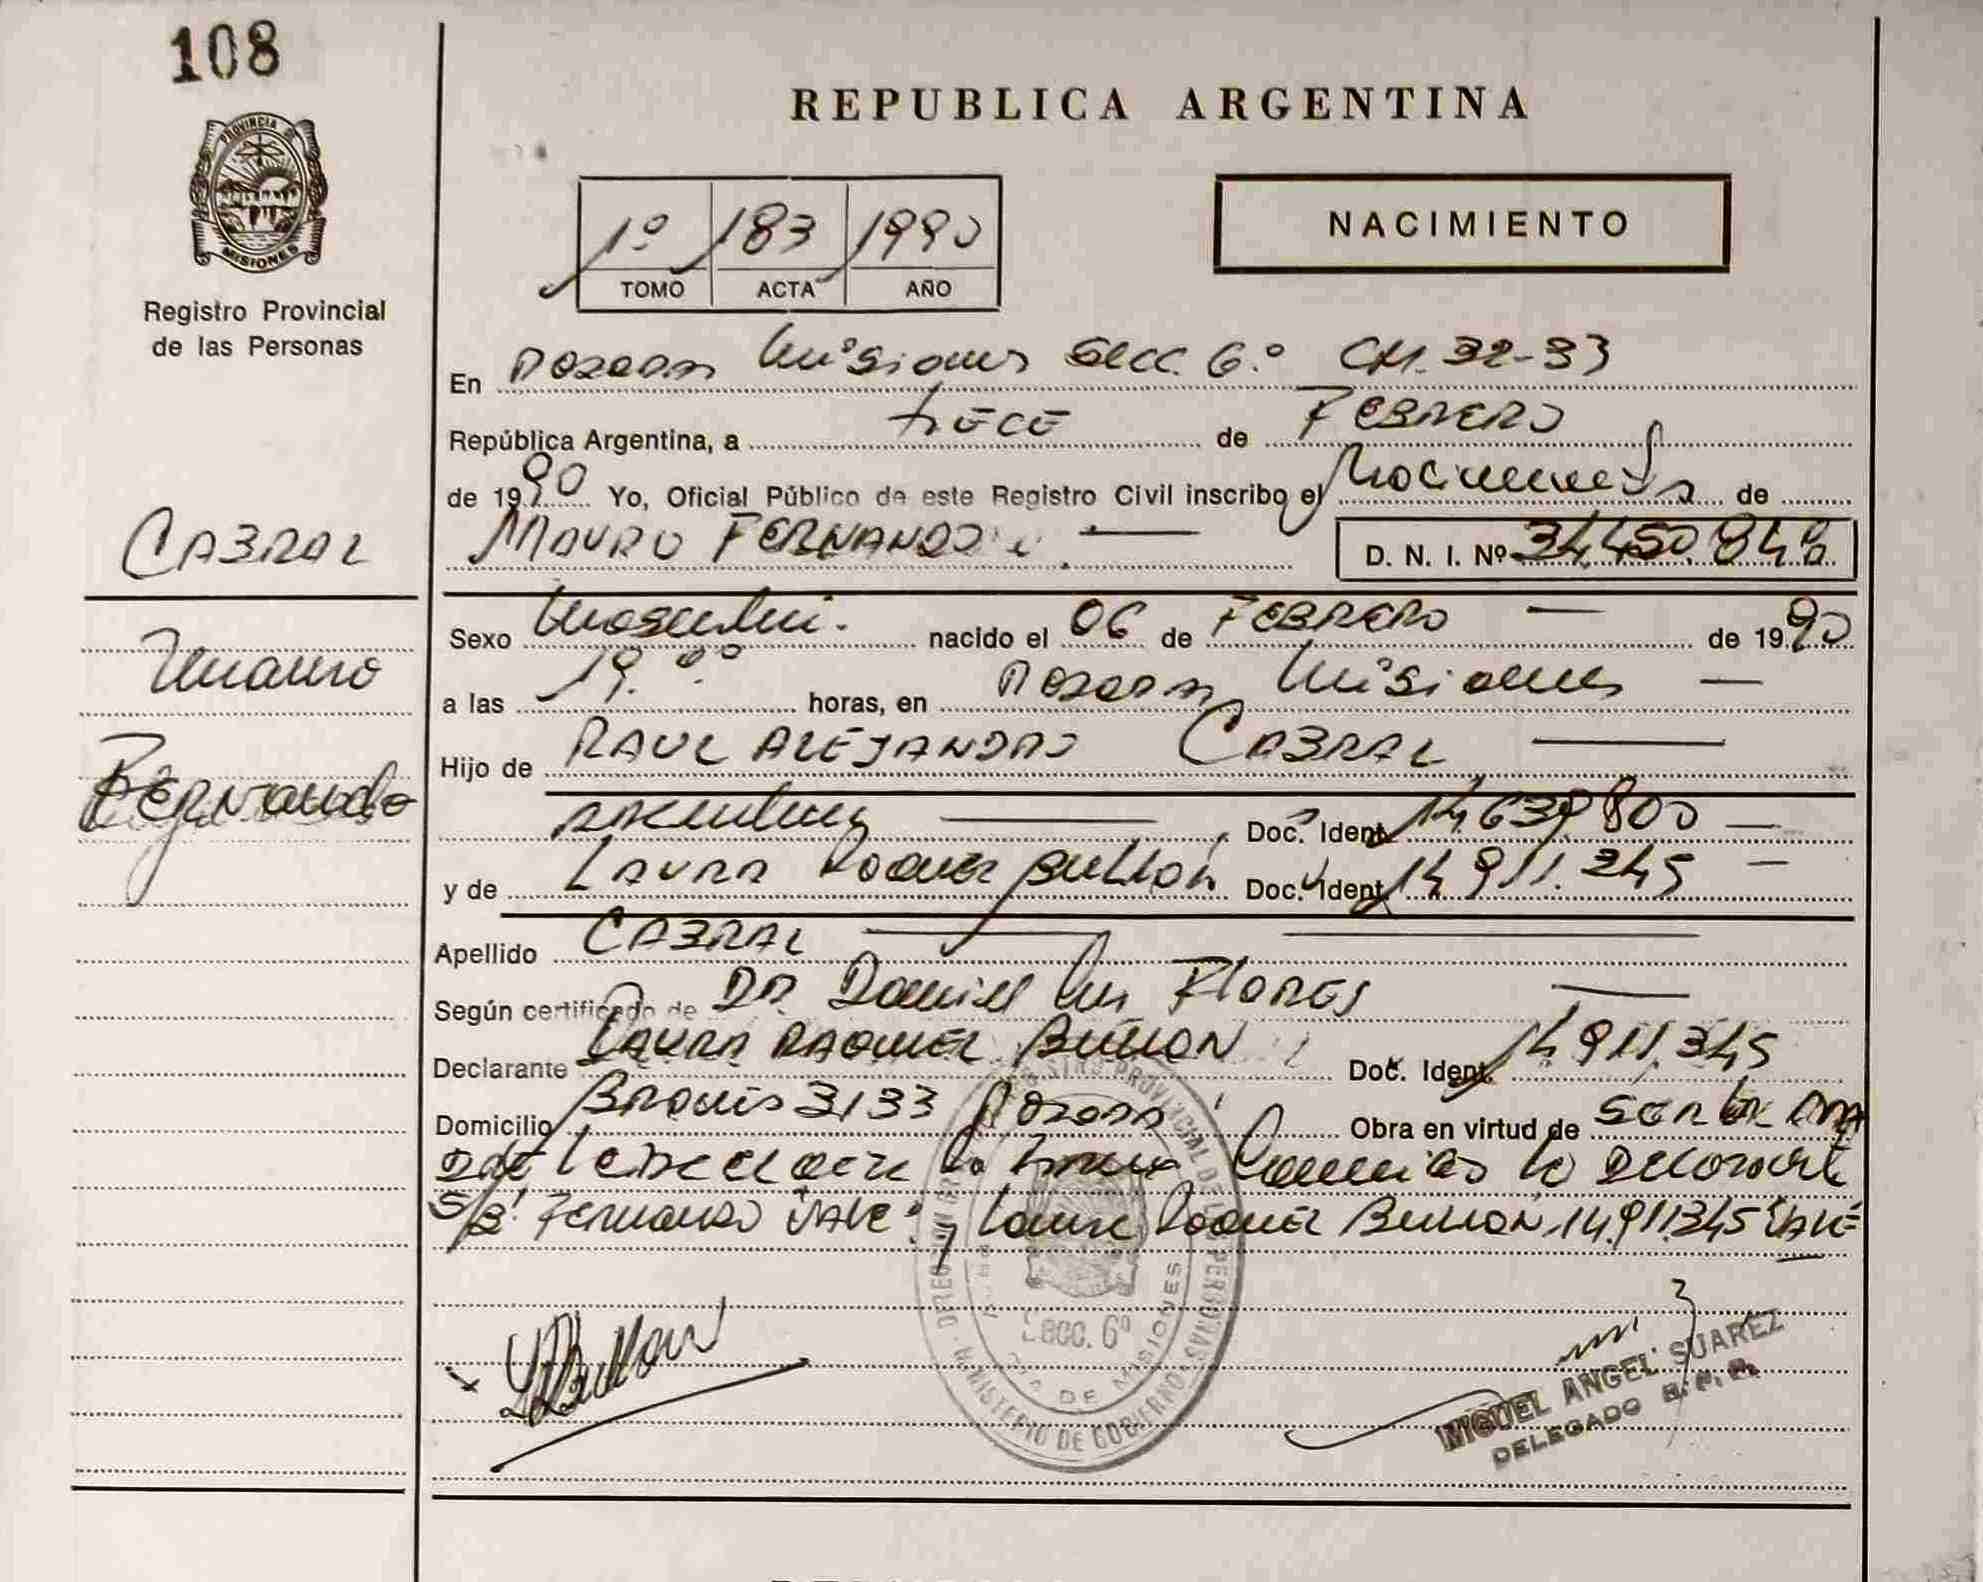 108
REPUBLICA ARGENTINA
PROVINCIA DE
MISIONES
Registro Provincial
de las Personas
1º 183 1990
TOMO ACTA AÑO
NACIMIENTO
En Posadas Misiones Secc. 6.º CH. 32-33
República Argentina, a trece de FEBRERO
de 1990 Yo, Oficial Público de este Registro Civil inscribo el Nacimiento de
CABRAL
MAURO FERNANDO D. N. I. Nº 34.450.848
Sexo Masculino. nacido el 06 de FEBRERO de 1990
Mauro
a las 19.00 horas, en Posadas Misiones
Hijo de RAUL ALEJANDRO CABRAL
Fernando
Argentino, Doc. Ident. 14.639.800
y de LAURA Raquel BULLON Doc. Ident. 14.911.345
Apellido CABRAL
Según certificado de DR. Daniel Luis FLORES
Declarante LAURA RAQUEL BULLON Doc. Ident. 14.911.345
Domicilio 3133 Posadas Obra en virtud de
Leída el acta la firma conmigo la Declarante
S/B: Fernando VALE: y Laura Raquel BULLON, 14.911.345 VALE
LRBullon
REGISTRO PROVINCIAL DE LAS PERSONAS
MINISTERIO DE GOBIERNO
Secc. 6º
DE MISIONES
MIGUEL ANGEL SUAREZ
DELEGADO R. P. P.